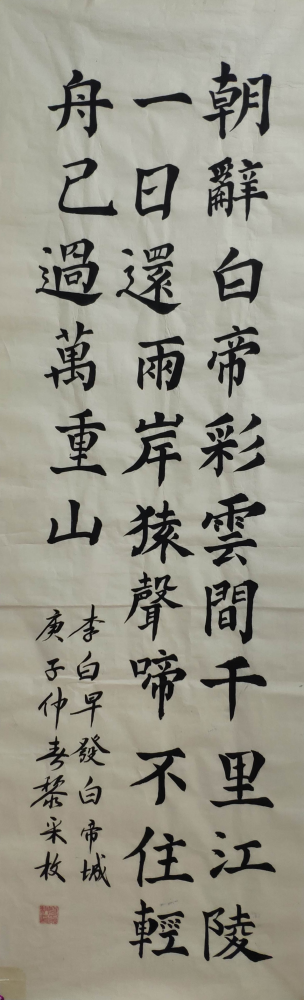 朝辭白帝彩雲間千里江陵
一日還兩岸猿聲啼不住輕
舟已過萬重山
李白早發白帝城
庚子仲春黎采枚